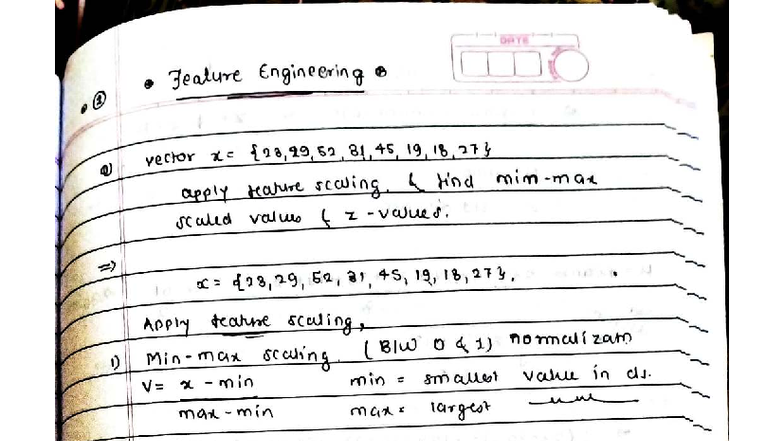 DATE
② • Feature Engineering •
Q) vector x = {23, 29, 52, 31, 45, 19, 18, 27}
apply feature scaling. & find min-max
scaled values & z-values.
=> x = {23, 29, 52, 31, 45, 19, 18, 27}.
Apply feature scaling,
1) Min-max scaling. (B/W 0 & 1) normalizatn
V = x - min min = smallest value in ds.
max - min max = largest